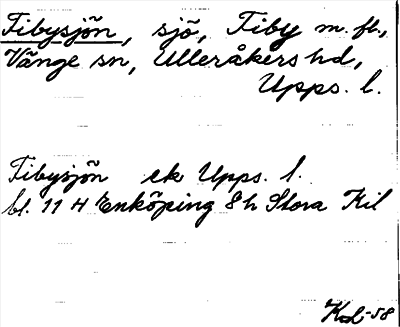 Tibysjön, sjö, Tiby m. fl.,
Vänge sn, Ulleråkers hd,
Upps. l.
Tibysjön ek Upps. l.
bl. 11 H Enköping 8h Stora Kil
-58